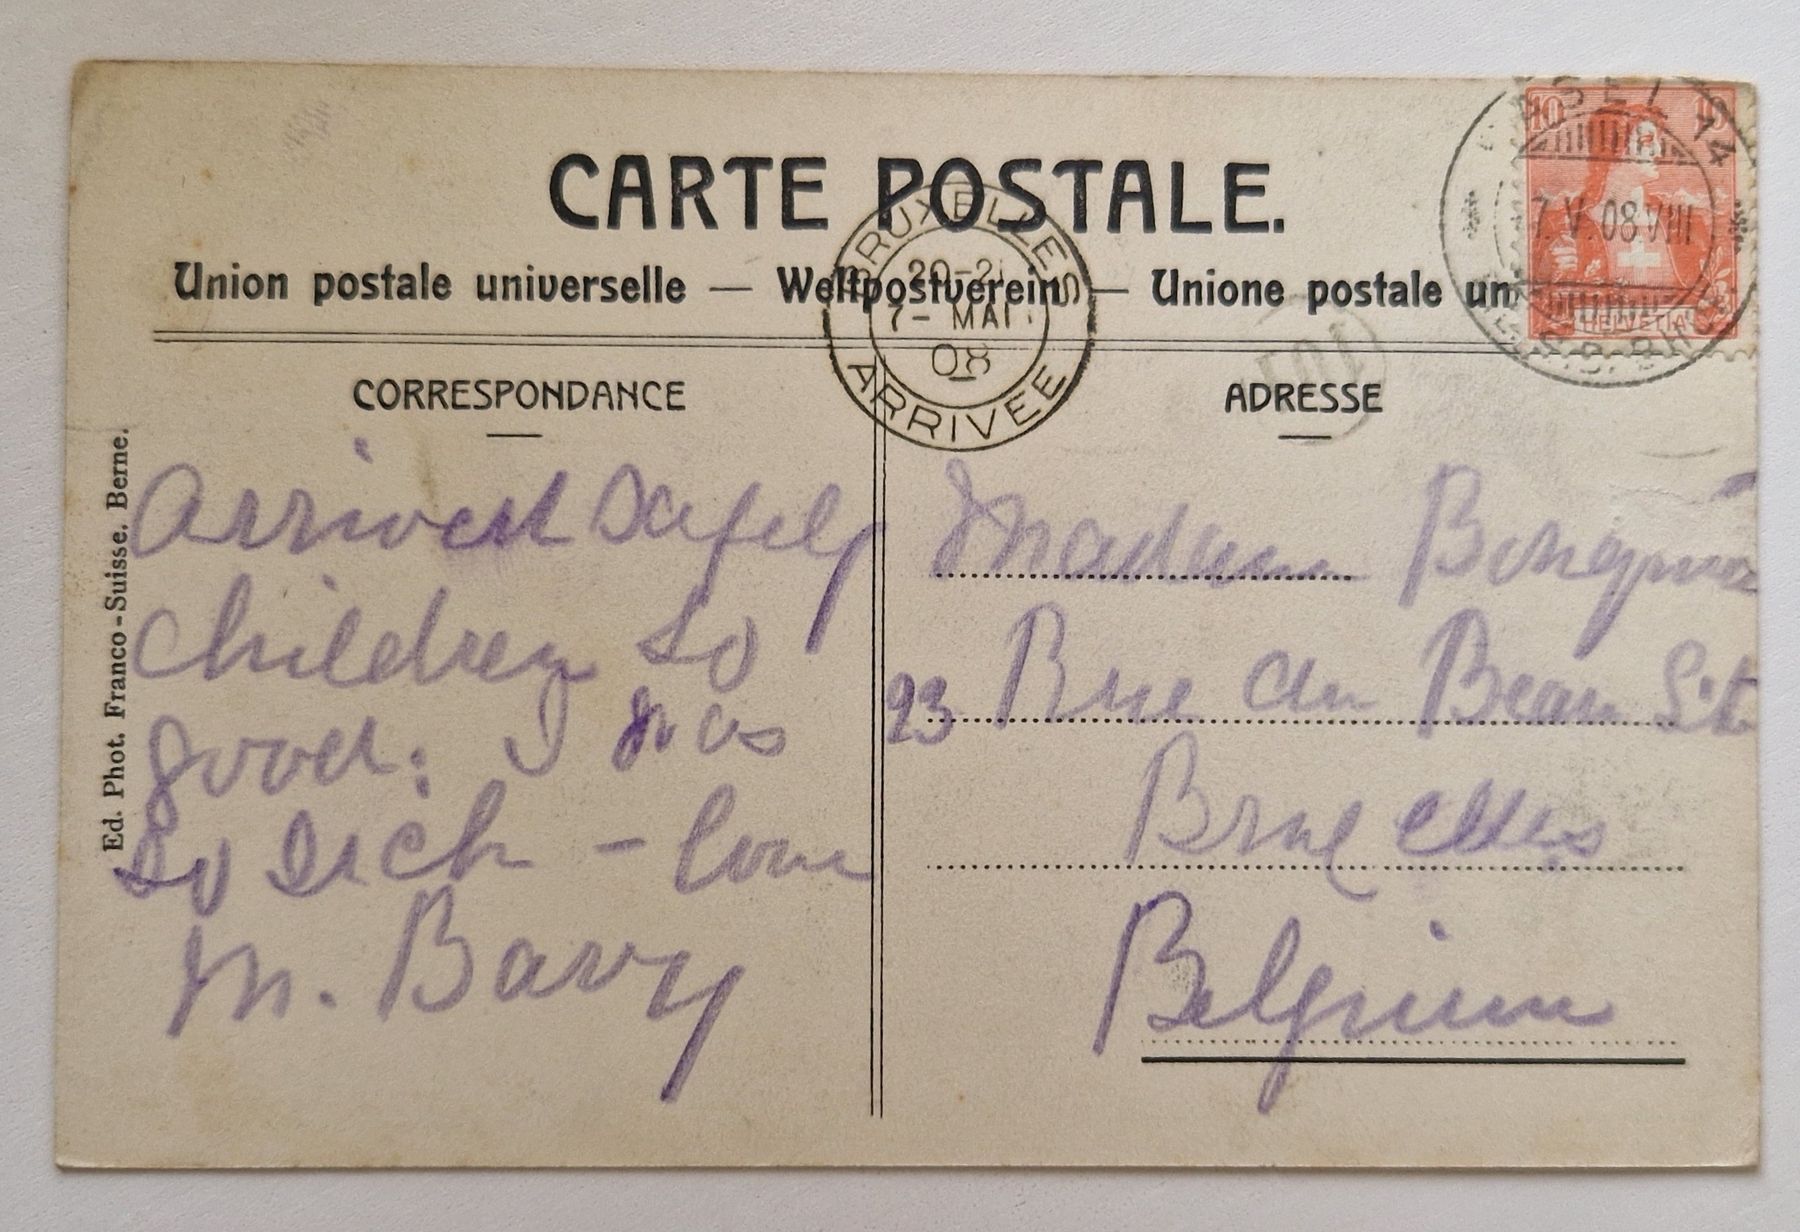 CARTE POSTALE.
Union postale universelle — Weltpostverein — Unione postale un
CORRESPONDANCE
ADRESSE
Ed. Phot. Franco-Suisse, Berne.
10 10
HELVETIA
BASEL 14
7.V.08 VIII
BRUXELLES
20-21
7- MAI
08
ARRIVEE
101
Arrived safely
children so
good. I was
so sick – love
M. Bavy
Madam
23 Rue du Beau Site
Bruxelles
Belgium